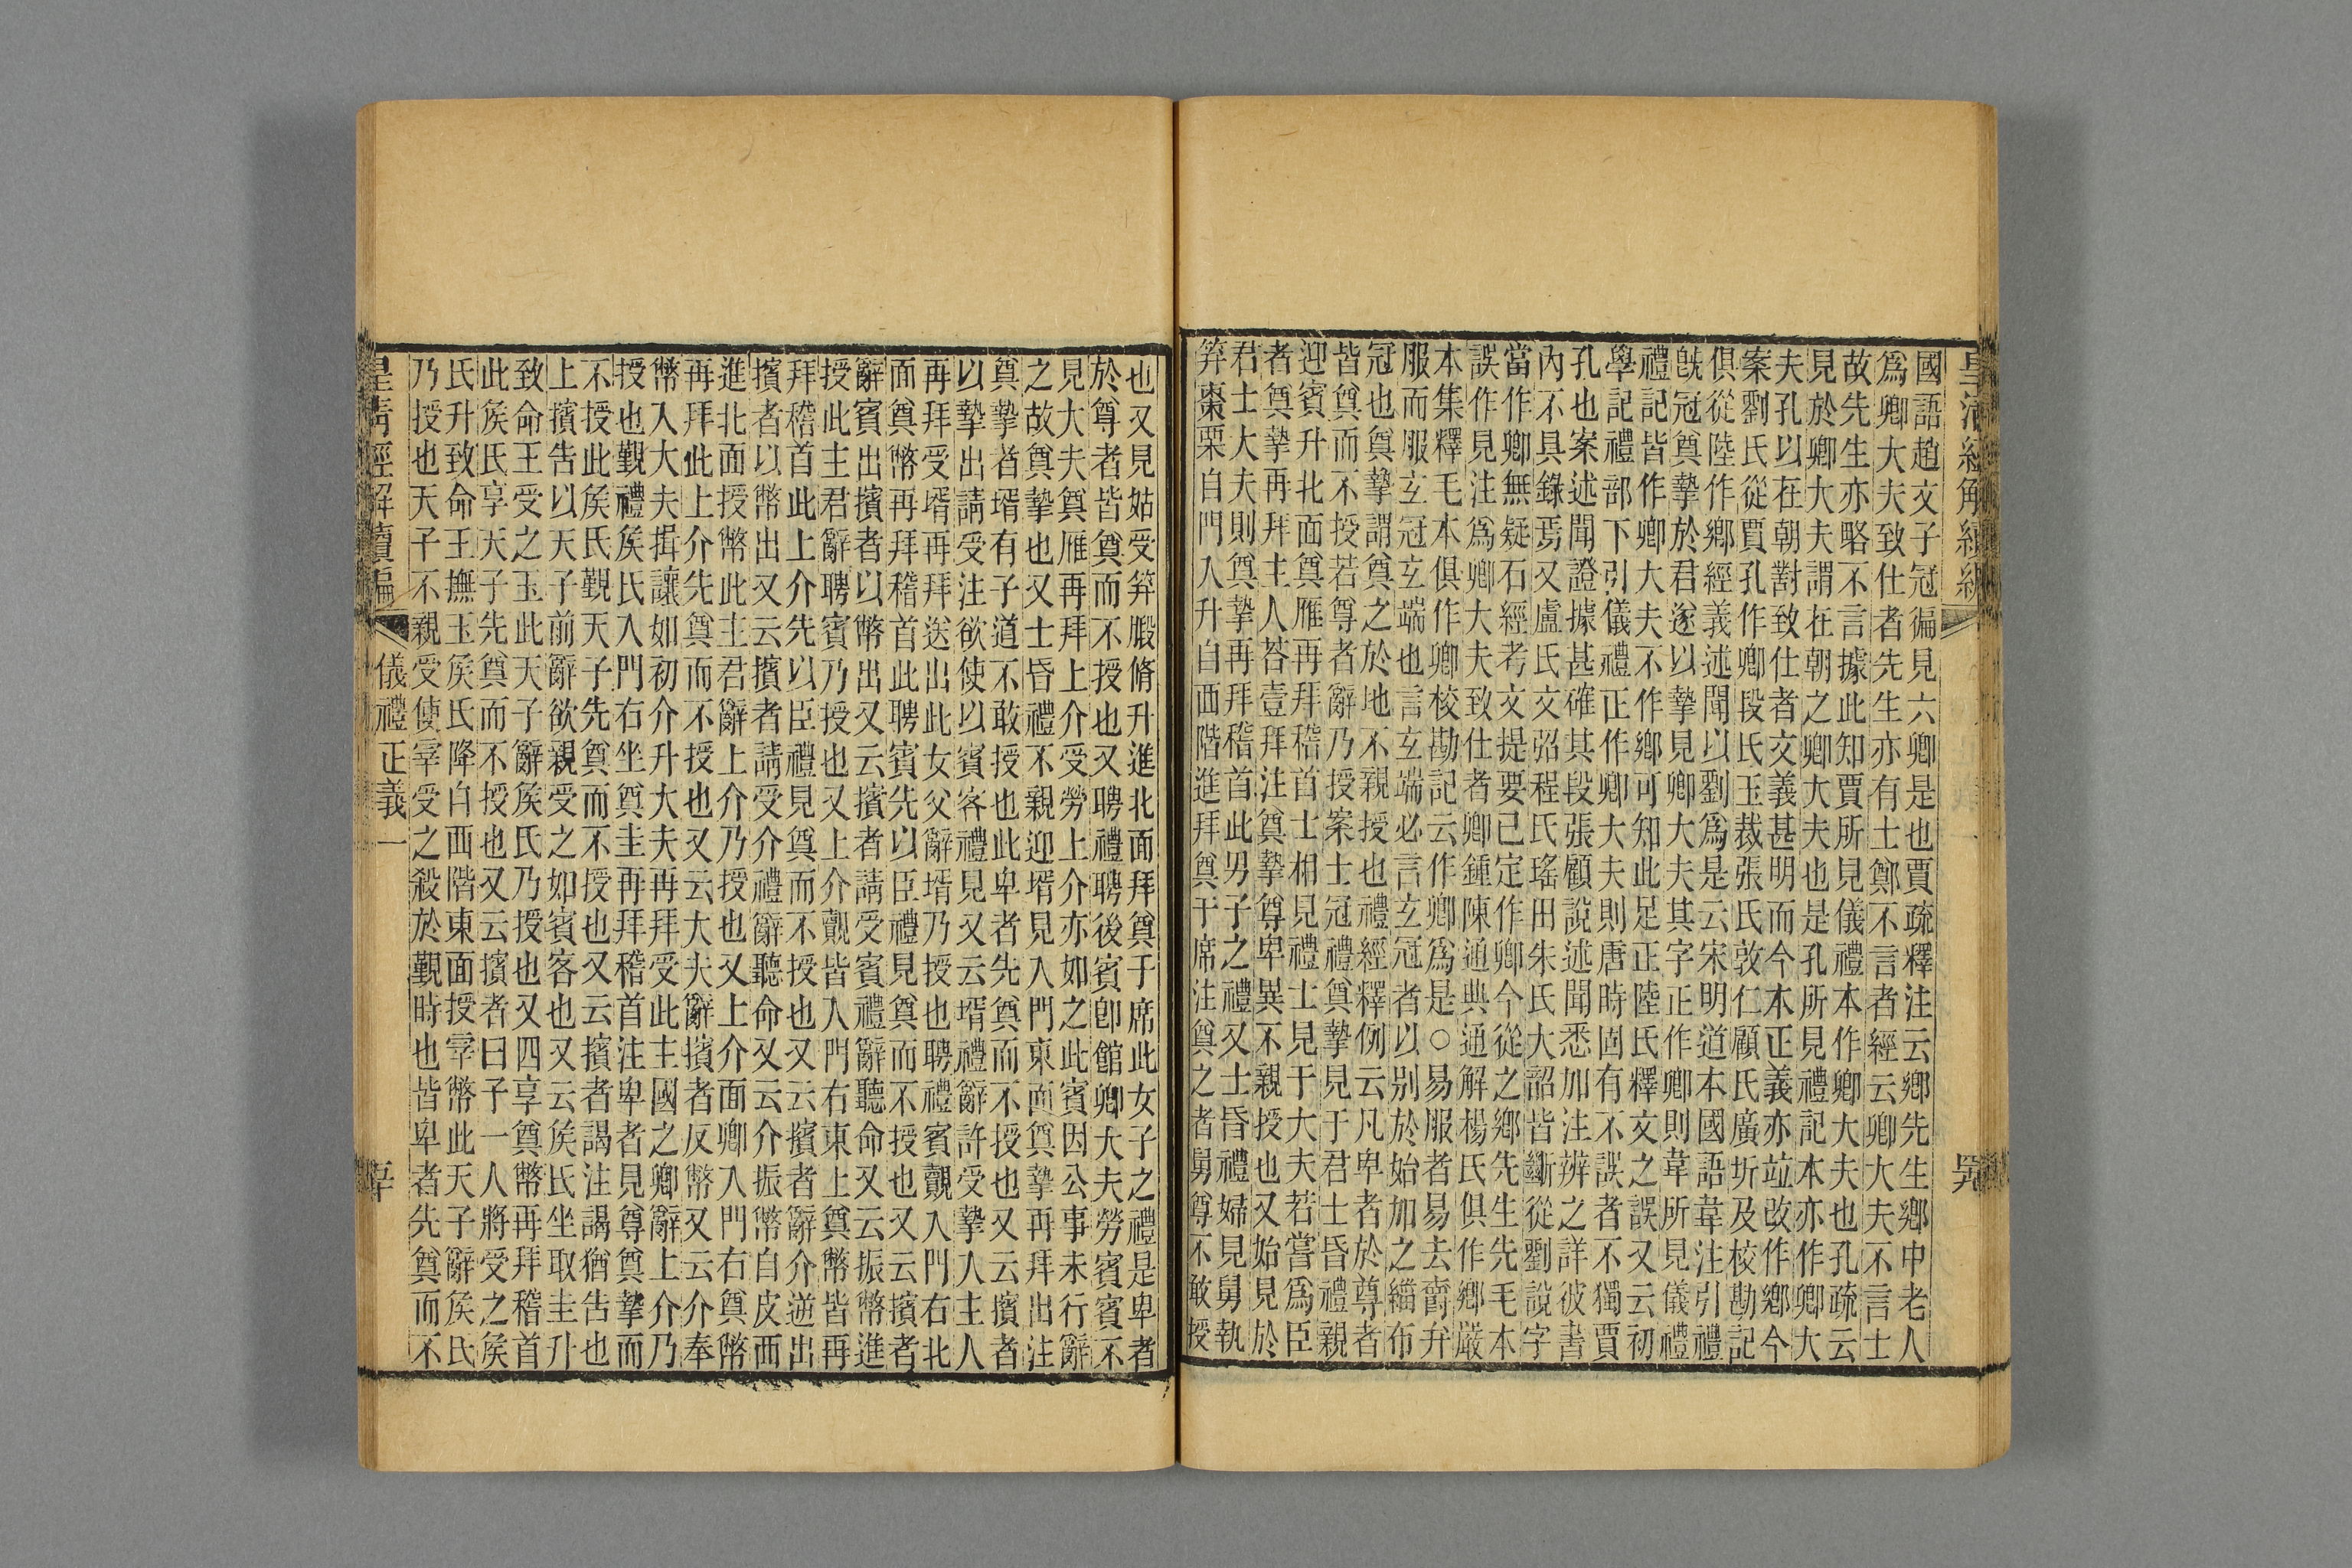 皇清經解續編
國語趙文子冠徧見六卿是也賈疏釋注云鄉先生鄉中老人
爲卿大夫致仕者先生亦有士鄭不言者經云卿大夫不言士
故先生亦略不言據此知賈所見儀禮本作卿大夫也孔疏云
見於卿大夫謂在朝之卿大夫也是孔所見禮記本亦作卿大
夫孔以在朝對致仕者文義甚明而今本正義亦竝改作鄉今
案劉氏從賈孔作卿段氏玉裁張氏敦仁顧氏廣圻及校勘記
俱從陸作鄉經義述聞以劉爲是云宋明道本國語韋注引禮
旣冠奠摯於君遂以摯見卿大夫其字正作卿則韋所見儀禮
禮記皆作卿大夫不作鄉可知此足正陸氏釋文之誤又云初
學記禮部下引儀禮正作卿大夫則唐時固有不誤者不獨賈
孔也案述聞證據甚確其段張顧說述聞悉加注辨之詳彼書
內不具錄焉又盧氏文弨程氏瑤田朱氏大韶皆斷從劉說字
當作卿無疑石經考文提要已定作卿今從之鄉先生先毛本
誤作見注爲卿大夫致仕者卿鍾陳通典通解楊氏俱作鄉嚴
本集釋毛本俱作卿校勘記云作卿爲是○易服者易去爵弁
服而服玄冠玄端也言玄端必言玄冠者以别於始加之緇布
冠也奠摯謂奠之於地不親授也禮經釋例云凡卑者於尊者
皆奠而不授若尊者辭乃授案士冠禮奠摯見于君士昏禮親
迎賓升北面奠雁再拜稽首士相見禮士見于大夫若嘗爲臣
者奠摯再拜主人荅壹拜注奠摯尊卑異不親授也又始見於
君士大夫則奠摯再拜稽首此男子之禮又士昏禮婦見舅執
笲棗栗自門入升自西階進拜奠于席注奠之者舅尊不敢授
也又見姑受笲腶脩升進北面拜奠于席此女子之禮是卑者
於尊者皆奠而不授也又聘禮聘後賓卽館卿大夫勞賓賓不
見大夫奠雁再拜上介受勞上介亦如之此賓因公事未行辭
之故奠摯也又士昏禮不親迎壻見入門東面奠摯再拜出注
奠摯者壻有子道不敢授也此卑者先奠而不授也又云擯者
以摯出請受注欲使以賓客禮見又云壻禮辭許受摯入主人
再拜受壻再拜送出此女父辭壻乃授也聘禮賓覿入門右北
面奠幣再拜稽首此聘賓先以臣禮見奠而不授也又云擯者
辭賓出擯者以幣出又云擯者請受賓禮辭聽命又云振幣進
授此主君辭聘賓乃授也又上介覿皆入門右東上奠幣皆再
拜稽首此上介先以臣禮見奠而不授也又云擯者辭介逆出
擯者以幣出又云擯者請受介禮辭聽命又云介振幣自皮西
進北面授幣此主君辭上介乃授也又上介面卿入門右奠幣
再拜此上介先奠而不授也又云大夫辭擯者反幣又云介奉
幣入大夫揖讓如初介升大夫再拜受此主國之卿辭上介乃
授也覲禮侯氏入門右坐奠圭再拜稽首注卑者見尊奠摯而
不授此侯氏覲天子先奠而不授也又云擯者謁注謁猶告也
上擯告以天子前辭欲親受之如賓客也又云侯氏坐取圭升
致命王受之玉此天子辭侯氏乃授也又四享奠幣再拜稽首
此侯氏享天子先奠而不授也又云擯者曰予一人將受之侯
氏升致命王撫玉侯氏降自西階東面授宰幣此天子辭侯氏
乃授也天子不親受使宰受之殺於覲時也皆卑者先奠而不
皇清經解續編 儀禮正義一